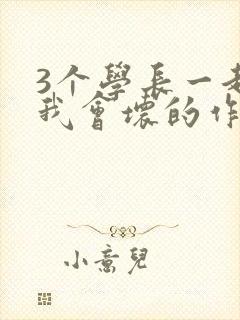 3个學長一起
我會壞的作
小意兒